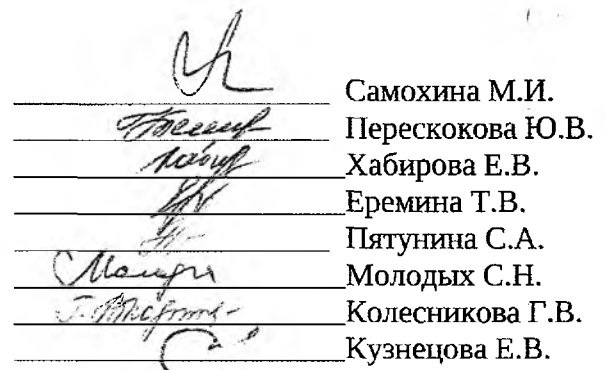 Самохина М.И.
Перескокова Ю.В.
Хабирова Е.В.
Еремина Т.В.
Пятунина С.А.
Молодых С.Н.
Колесникова Г.В.
Кузнецова Е.В.